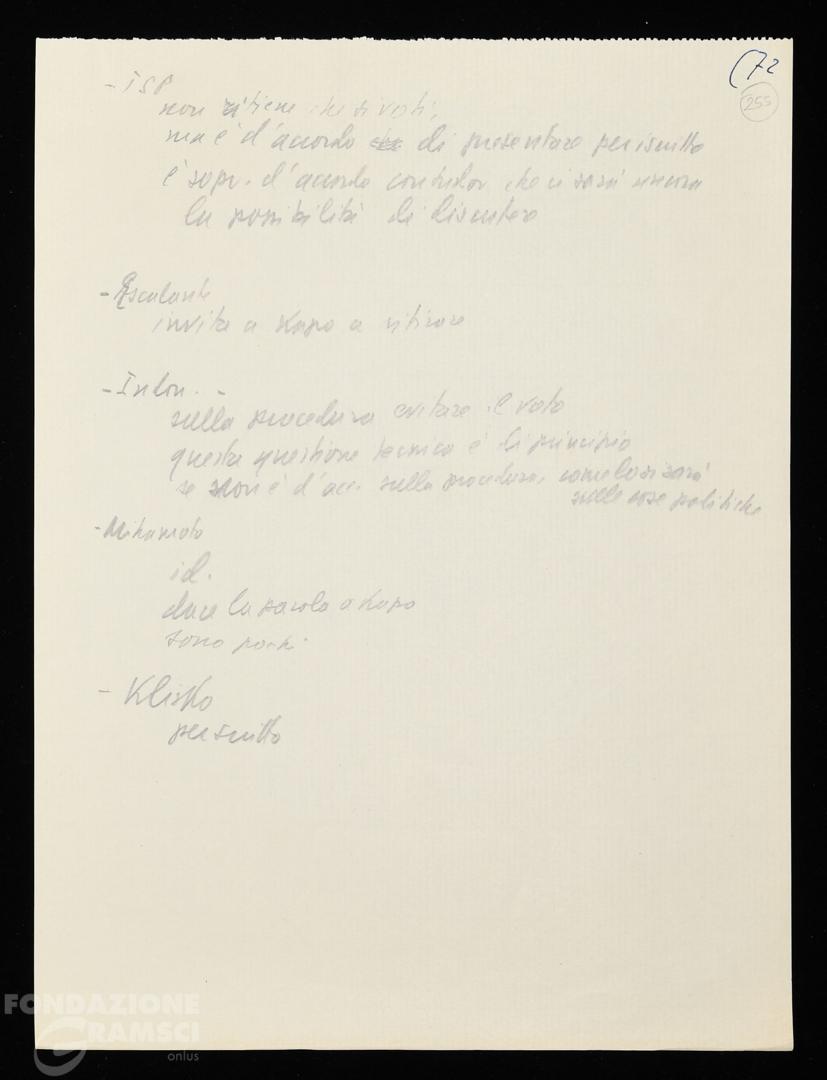 (72
255
- ISP
non ritiene che si voti,
ma è d'accordo che di presentare per iscritto
è sopr. d'accordo che ci sarà ancora
la possibilità di discutere
- Escalante
invita a Kapo a ritirare
- Indon. -
sulla procedura evitare il voto
questa questione tecnica è di principio
se non è d'acc. sulla procedura, come lo si sarà
sulle cose politiche
- Mihamoto
id.
dare la parola a Kapo
sono pochi
- Klisko
per scritto
FONDAZIONE
GRAMSCI
onlus